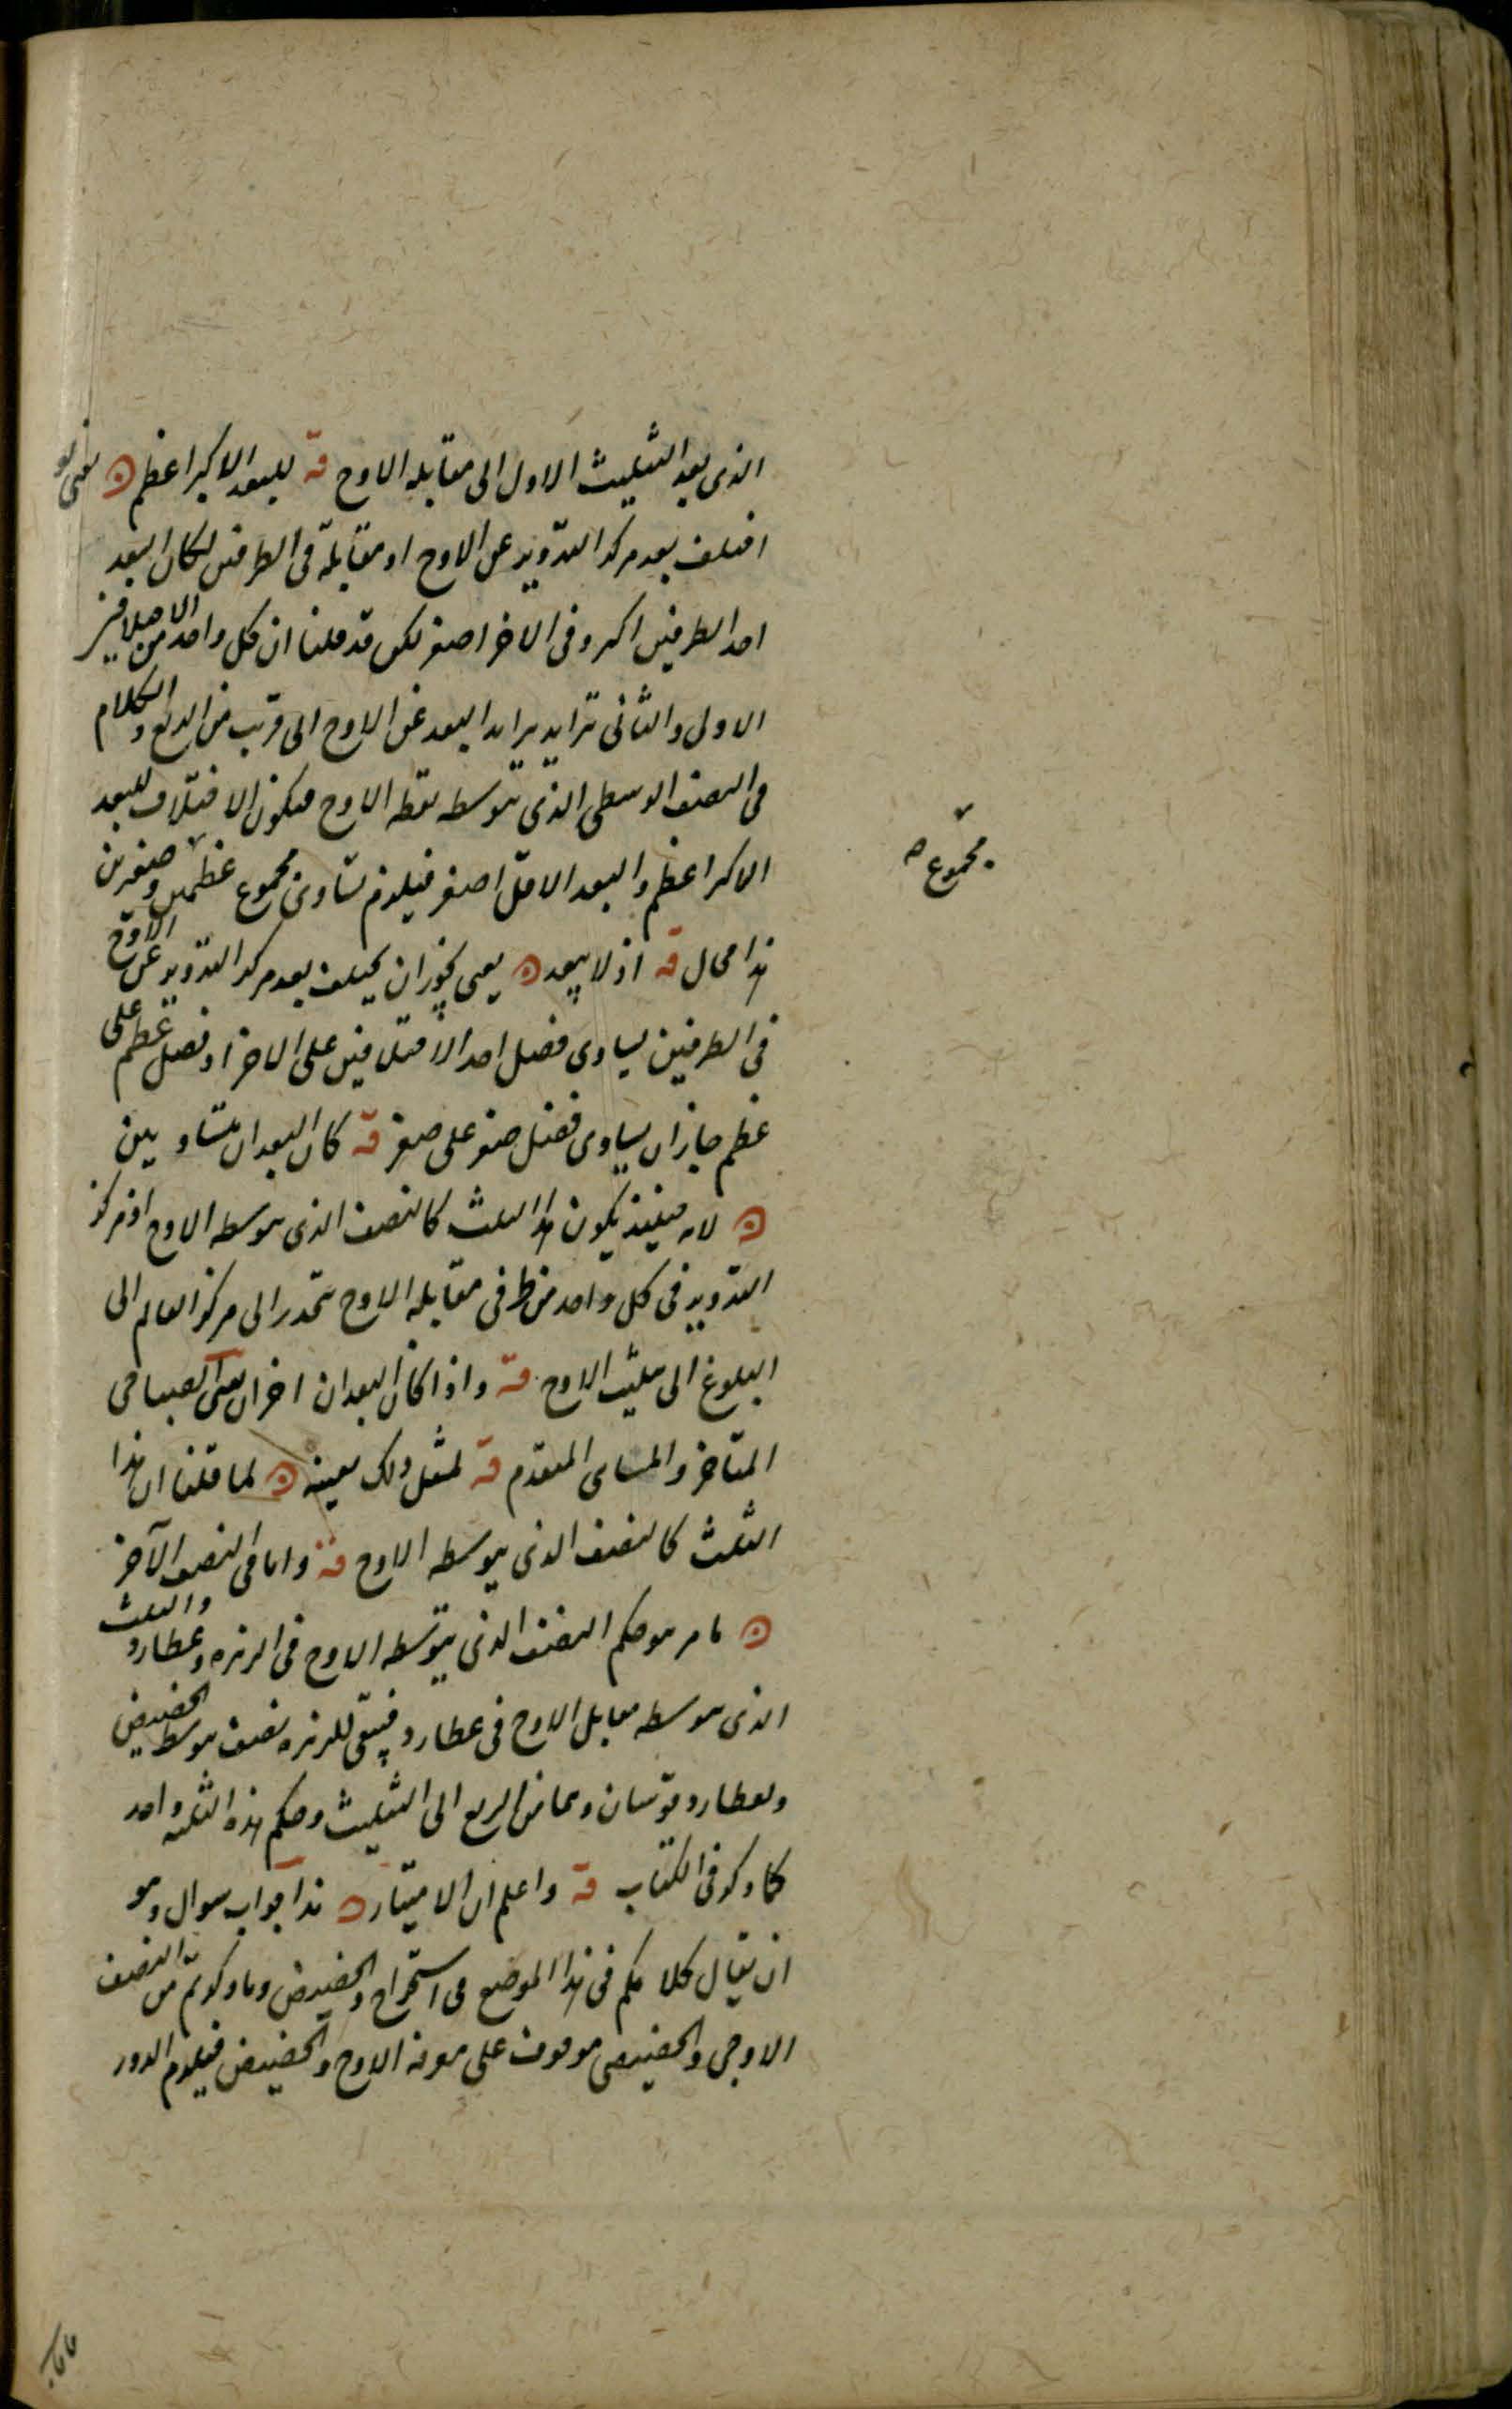 الذى بعد التثليث الاول الى مقابلة الاوج قه للبعد الاكبر اعظم ن يعنى لو
اختلف بعد مركز التدوير عن الاوج او مقابلة فى الطرفين لكان البعد
احد الطرفين اكبر وفى الاخر اصغر لكن قد قلنا ان كل واحد من الاختلافين
الاول والثانى تزايد بزايد البعد عن الاوج الى قرب من الربع والكلام
فى النصف الوسطى الذى يتوسطه نقطه الاوج فيكون الاختلاف للبعد
الاكبر اعظم والبعد الاقل اصغر فيلزم تساوى مجموع عظمين وصغرين
مجموع صح
هذا محال قه اذ لا يبعد ن يعنى يجوز ان يختلف بعد مركز التدوير عن الاوج
فى الطرفين يساوى فضل احد الاختلافين على الاخر او فضل عظم على
عظم جاز ان يساوى فضل صغر على صغر قه كان البعدان متساويين
ن لانه حينئذ يكون هذا الثلث كالنصف الذى يتوسطه الاوج اذ مركز
التدوير فى كل واحد من طرفى مقابلة الاوج ينحدر الى مركز العالم الى
البلوغ الى تثليث الاوج قه واذا كان البعدان اخران يعنى الصباحى
المتاخر والمسائى المتقدم قه لمثل ذلك بعينه ن لما قلنا ان هذا
الثلث كالنصف الذى يتوسطه الاوج قه واما فى النصف الآخر
ن ما مر هو حكم النصف الذى يتوسطه الاوج فى الزهره وعطارد والثلث
الذى يتوسطه مقابل الاوج فى عطارد فيبقى للزهره نصف يتوسطه الحضيض
ولعطارد قوسان وهما من الربع الى التثليث وحكم هذه الثلثه واحد
كما ذكر فى الكتاب قه واعلم ان الامتياز ن هذا جواب سوال وهو
ان يقال كلامكم فى هذا الموضع فى استخراج والحضيض وما ذكرتم من النصف
الاوجى والحضيضى موقوف على معرفة الاوج والحضيض فيلزم الدور